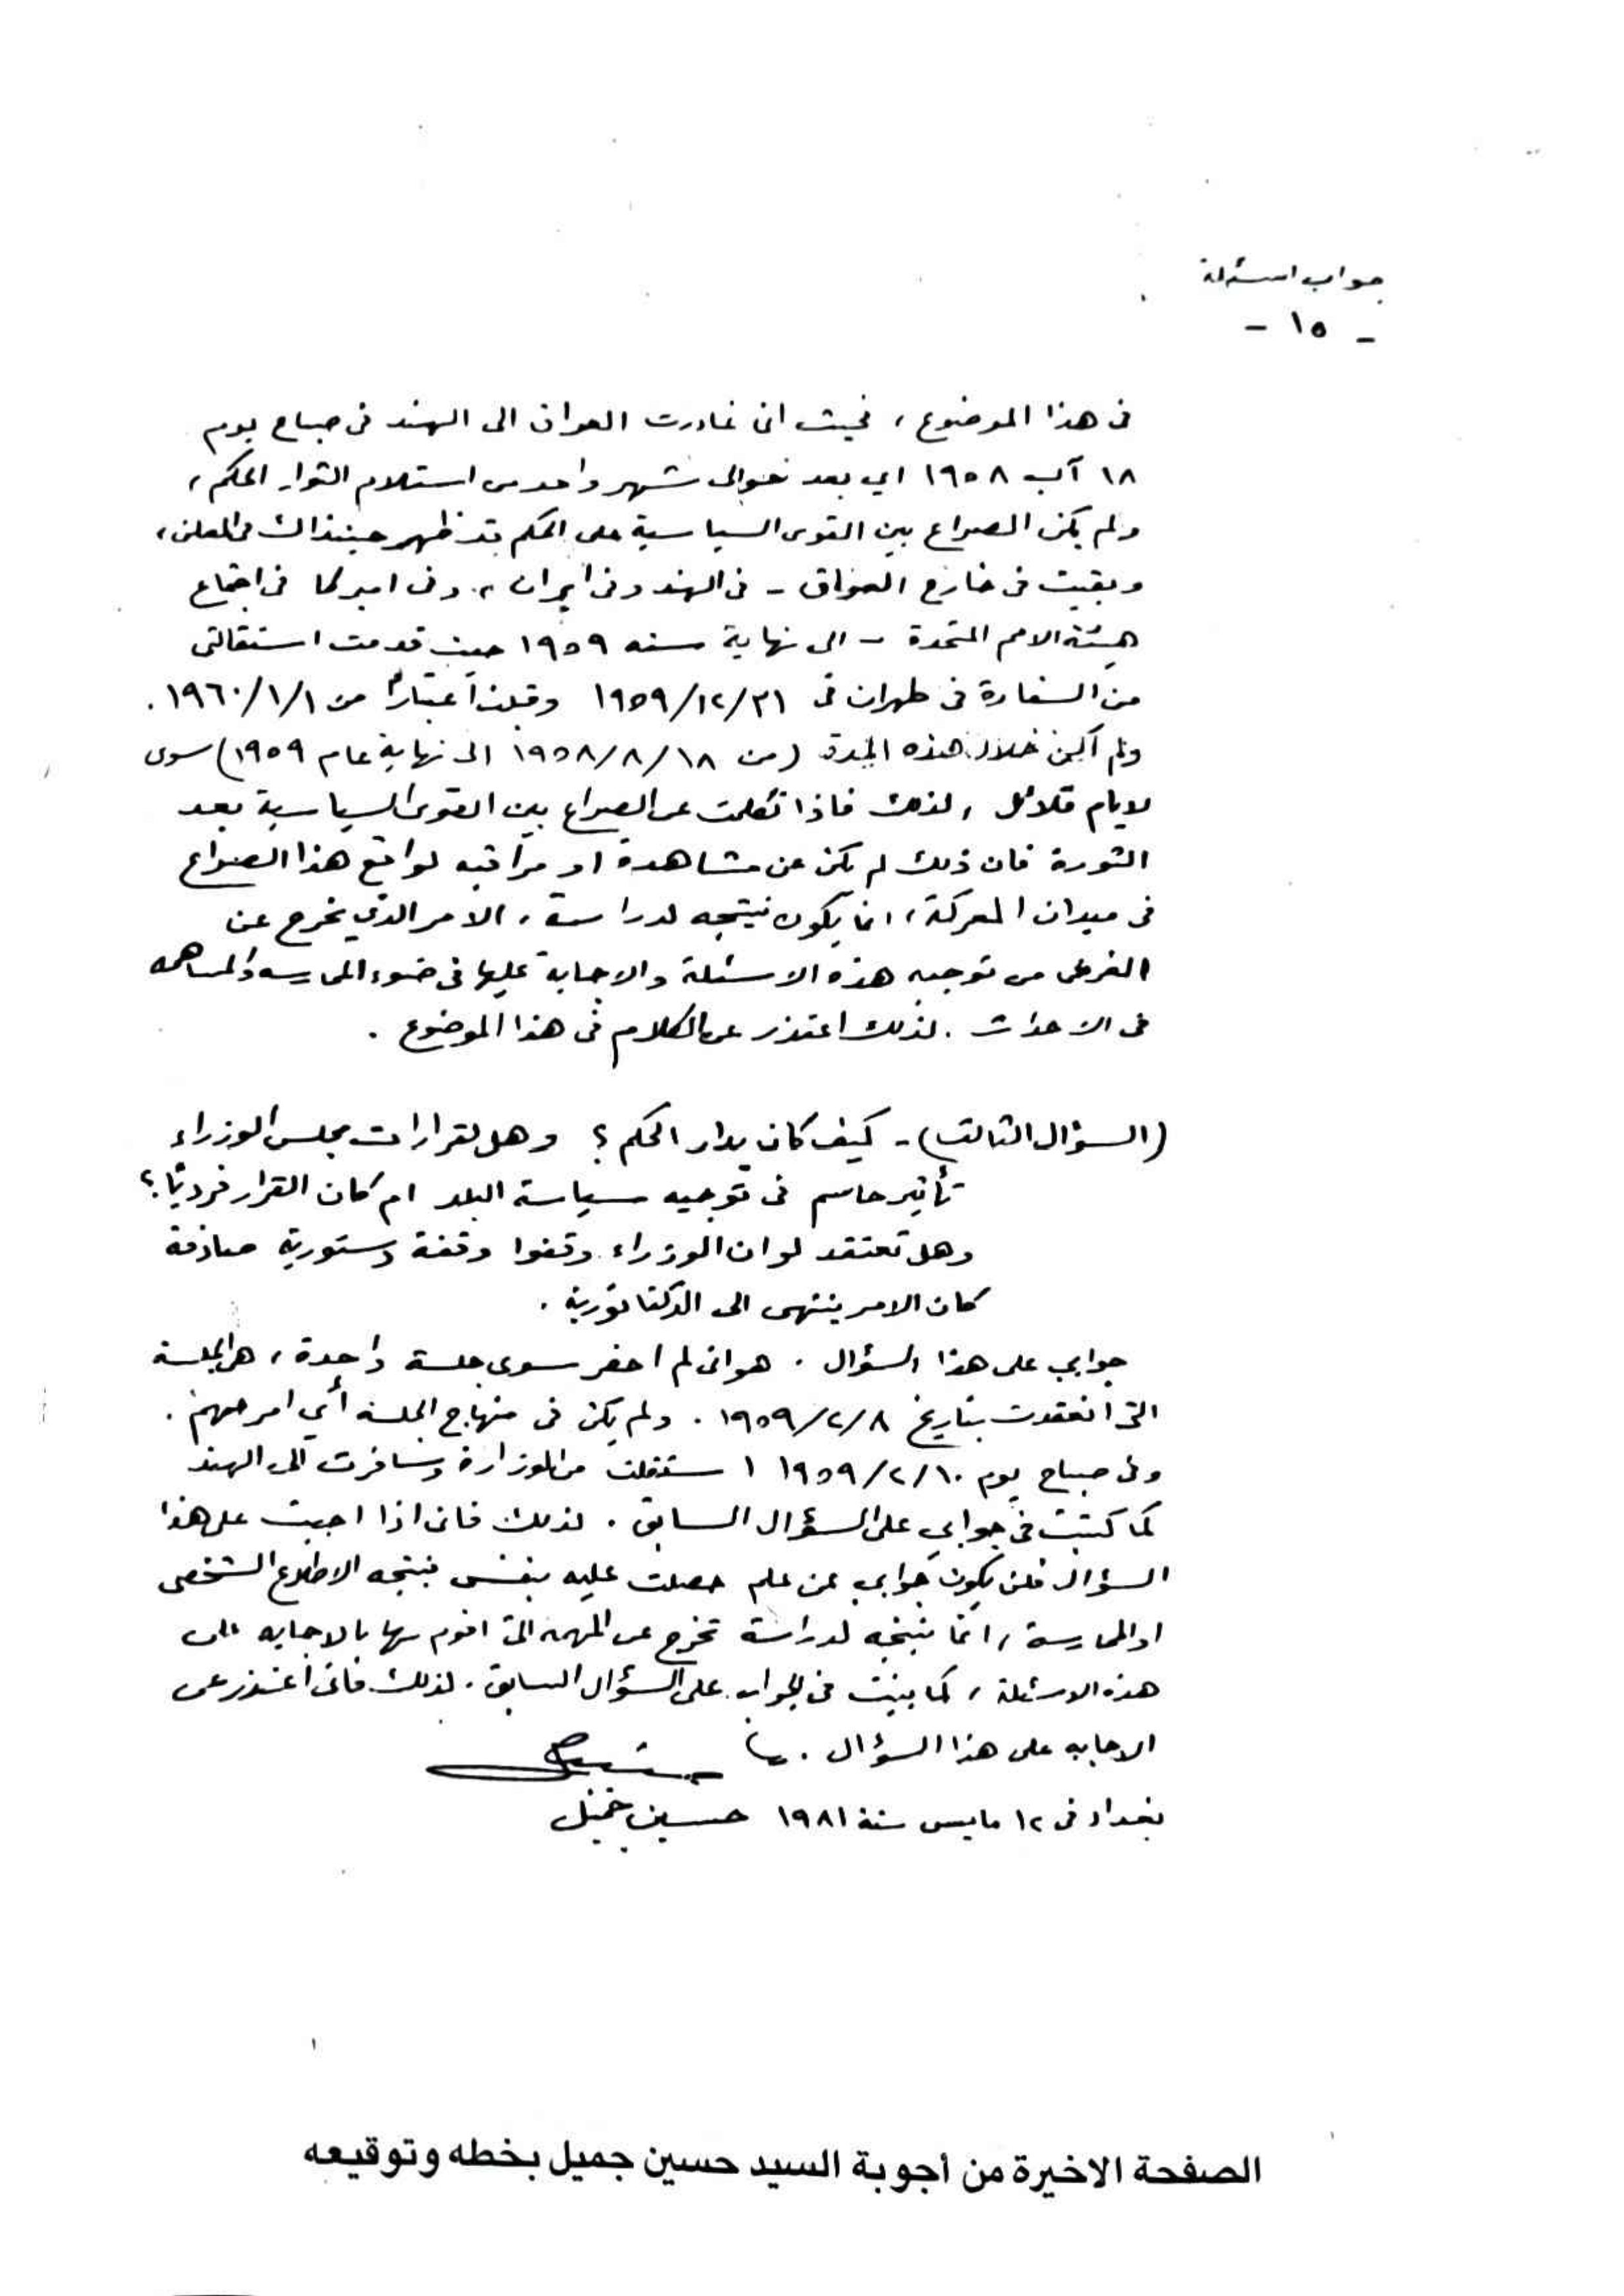 جواب اسئلة
- ١٥ -
في هذا الموضوع، فحيث اني غادرت العراق الى الهند في صباح يوم
١٨ آب ١٩٥٨ اي بعد حوالى شهر واحد من استلام الثوار الحكم،
ولم يكن الصراع بين القوى السياسية على الحكم قد ظهر حينذاك في العلن،
وبقيت في خارج العراق - في الهند وفي ايران، وفي اميركا في اجتماع
هيئة الامم المتحدة - الى نهاية سنه ١٩٥٩ حيث قدمت استقالتي
من السفارة في طهران في ٣١/١٢/١٩٥٩ وقبلت اعتبارًا من ١/١/١٩٦٠.
ولم أكن خلال هذه المدة (من ١٨/٨/١٩٥٨ الى نهاية عام ١٩٥٩) سوى
لايام قلائل، لذلك فاذا تكلمت عن الصراع بين القوى السياسية بعد
الثورة فان ذلك لم يكن عن مشاهدة او مراقبه لواقع هذا الصراع
في ميدان المعركة، انما يكون نتيجه لدراسة، الامر الذي يخرج عن
الغرض من توجيه هذه الاسئلة والاجابة عليها في ضوء الممارسه والمساهمه
في الاحداث. لذلك اعتذر عن الكلام في هذا الموضوع.
(السؤال الثالث) - كيف كان يدار الحكم؟ وهل لقرارات مجلس الوزراء
تأثير حاسم في توجيه سياسة البلد ام كان القرار فرديًا؟
وهل تعتقد لو ان الوزراء وقفوا وقفة دستورية صادقة
كان الامر ينتهي الى الدكتاتورية.
جوابي على هذا السؤال. هو اني لم احضر سوى جلسة واحدة، هي الجلسة
التي انعقدت بتاريخ ٨/٢/١٩٥٩. ولم يكن في منهاج الجلسة أي امر مهم.
وفي صباح يوم ١٠/٢/١٩٥٩ استقلت من الوزارة وسافرت الى الهند
كما كتبت في جوابي على السؤال السابق. لذلك فاني اذا اجبت على هذا
السؤال فلن يكون جوابي عن علم حصلت عليه بنفسي نتيجه الاطلاع الشخصي
او الممارسة، انما نتيجه لدراسة تخرج عن المهمه التي اقوم بها بالاجابه على
هذه الاسئلة، كما بينت في الجواب على السؤال السابق. لذلك فاني اعتذر عن
الاجابه على هذا السؤال.
بغداد في ١٢ مايس سنة ١٩٨١ حسين جميل
الصفحة الاخيرة من أجوبة السيد حسين جميل بخطه وتوقيعه